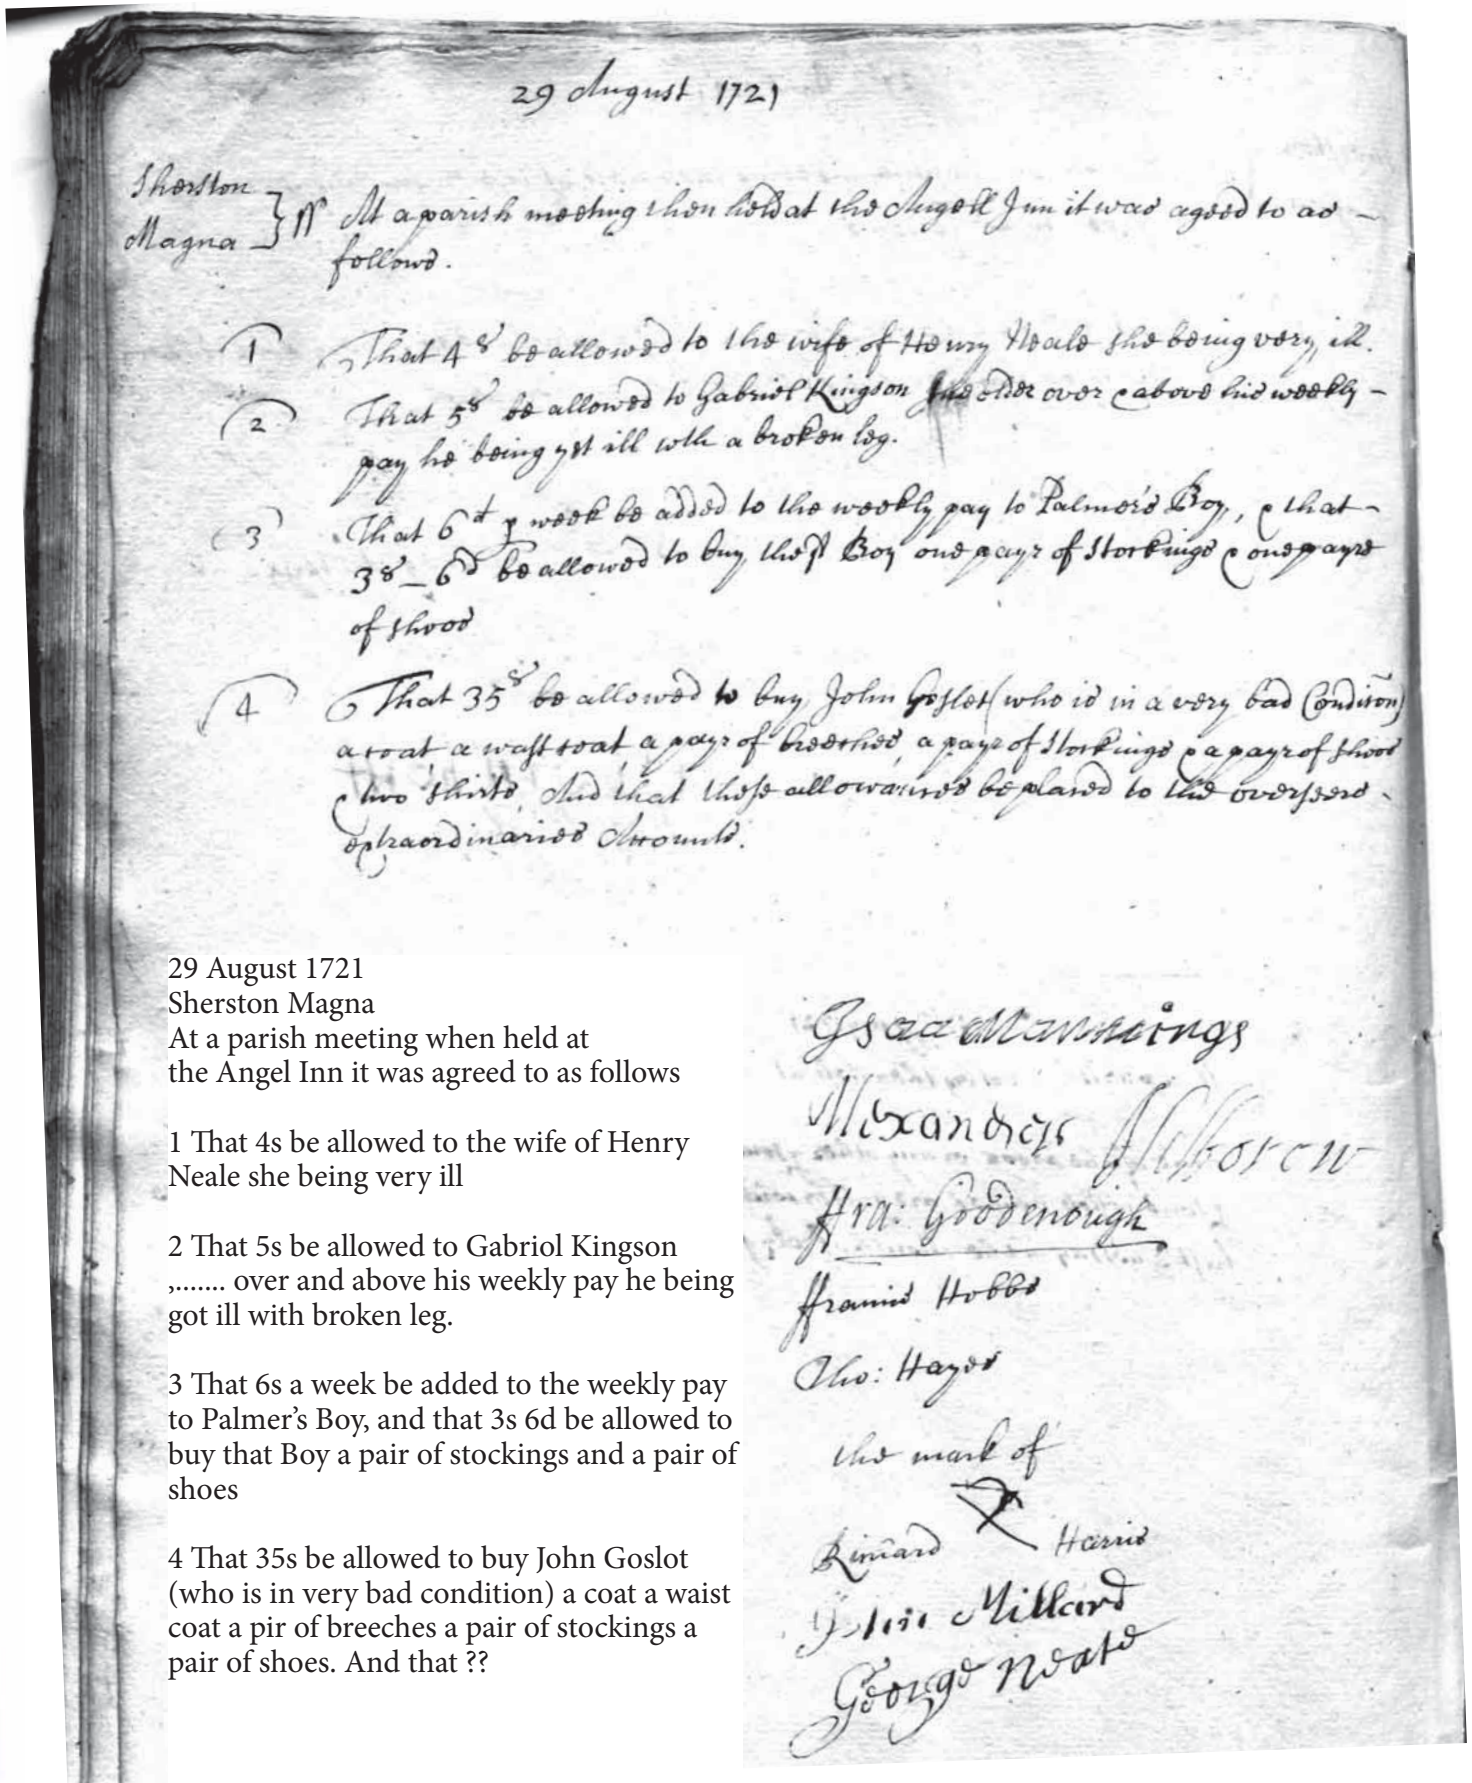 29 August 1721
Sherston
Magna
At a parish meeting then held at the Angell Inn it was ageed to as
follows.
1 That 4s be allowed to the wife of Henry Neale she being very ill.
2 That 5s be allowed to Gabriel Kingson the elder over & above his weekly
pay he being yet ill wth a broken leg.
3 That 6d p week be added to the weekly pay to Palmer's Boy, & that
3s - 6d be allowed to buy the sd Boy one payr of Stockings & one payre
of shoos
4 That 35s be allowed to buy John Goslet (who is in a very bad Condicon)
a coat a wastcoat a payr of breeches, a payr of Stockings & a payr of shoos
& two shirts, And that these allowances be placed to the overseers
extraordinaries Accounts.
29 August 1721
Sherston Magna
At a parish meeting when held at
the Angel Inn it was agreed to as follows
1 That 4s be allowed to the wife of Henry
Neale she being very ill
2 That 5s be allowed to Gabriol Kingson
,....... over and above his weekly pay he being
got ill with broken leg.
3 That 6s a week be added to the weekly pay
to Palmer’s Boy, and that 3s 6d be allowed to
buy that Boy a pair of stockings and a pair of
shoes
4 That 35s be allowed to buy John Goslot
(who is in very bad condition) a coat a waist
coat a pir of breeches a pair of stockings a
pair of shoes. And that ??
Isaac Mannings
Alexander
Fra: Goodenough
ffrancis Hobbs
Tho: Hayes
the mark of
Richard Harris
John Millard
George Neate